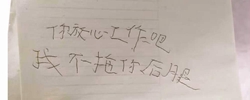 你放心工作吧
我不拖你后腿